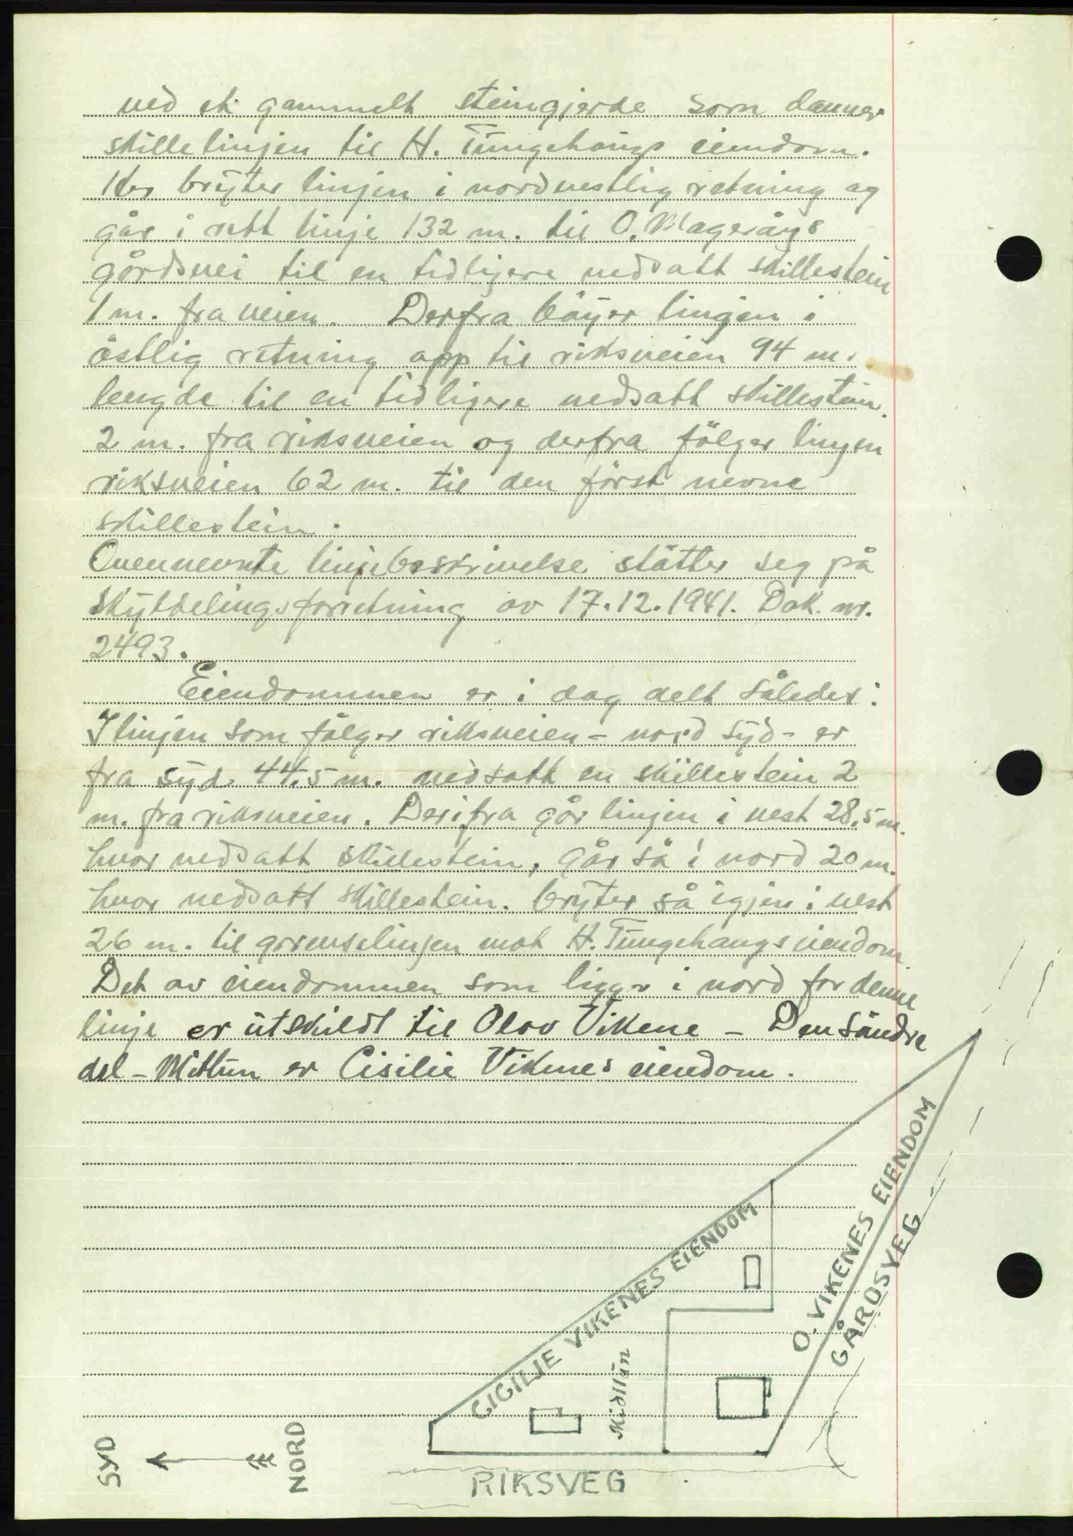 ved et gammelt steingjerde som danner
skillelinjen til H. Tungehaugs eiendom.
Her bryter linjen i nordvestlig retning og
går i rett linje 132 m. til O. Magerøys
gårdsvei til en tidligere nedsatt skillestein
1 m. fra veien. Derfra bøyer linjen i
østlig retning opp til riksveien 94 m.
lengde til en tidligere nedsatt skillestein.
2 m. fra riksveien og derfra følger linjen
riksveien 62 m. til den først nevne
skillestein.
Ovennevnte linjebeskrivelse støtter seg på
Skyldelingsforretning av 17.12.1941. Dok. nr.
2493.
Eiendommen er i dag delt således:
I linjen som følger riksveien - nord syd - er
fra syd 44.5 m. nedsatt en skillestein 2
m. fra riksveien. Derifra går linjen i vest 28.5 m.
hvor nedsatt skillestein, går så i nord 20 m.
hvor nedsatt skillestein. bryter så igjen i vest
26 m. til grenselinjen mot H. Tungehaugs eiendom.
Det av eiendommen som ligger i nord for denne
linje er utskildt til Olov Vikene - Den søndre
del - Midttun er Cisilie Vikenes eiendom.
CICILIE VIKENES EIENDOM
O. VIKENES EIENDOM
GÅRDSVEG
Midttun
SYD
NORD
RIKSVEG